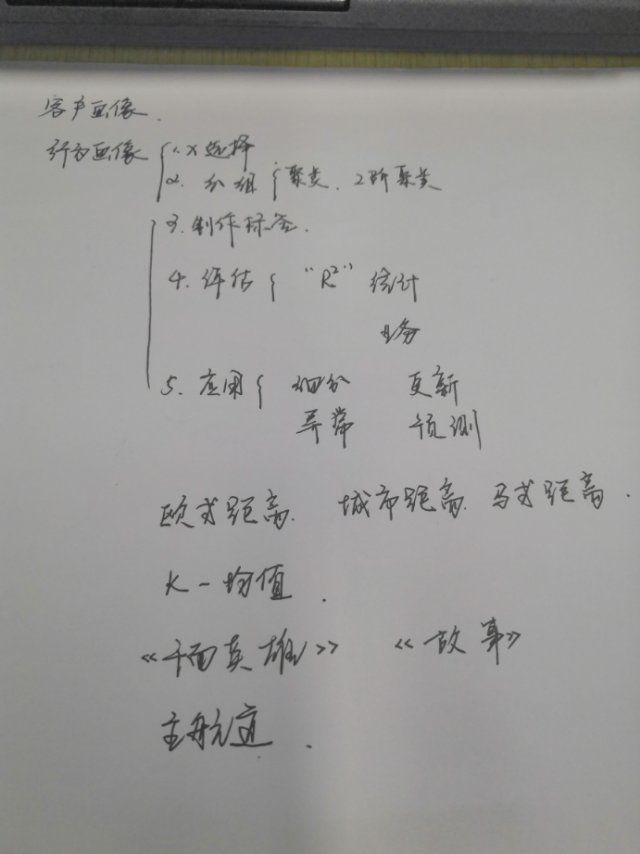 客户画像.
行为画像 { 1. X选择
2. 分组 { 聚类、2阶聚类
3. 制作标签.
4. 评估 { "R²" 统计
业务
5. 应用 { 细分 更新
异常 预测
欧式距离. 城市距离. 马式距离.
K-均值.
《千面英雄》 《故事》
主航道.